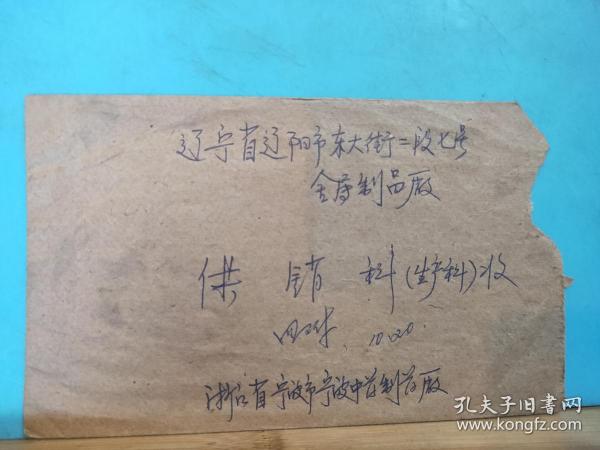 辽宁省辽阳市东大街二段七号
制品厂
供销科(生产科)收
10.20.
浙江省宁波市宁波中药制药厂
孔夫子旧书网
www.kongfz.com